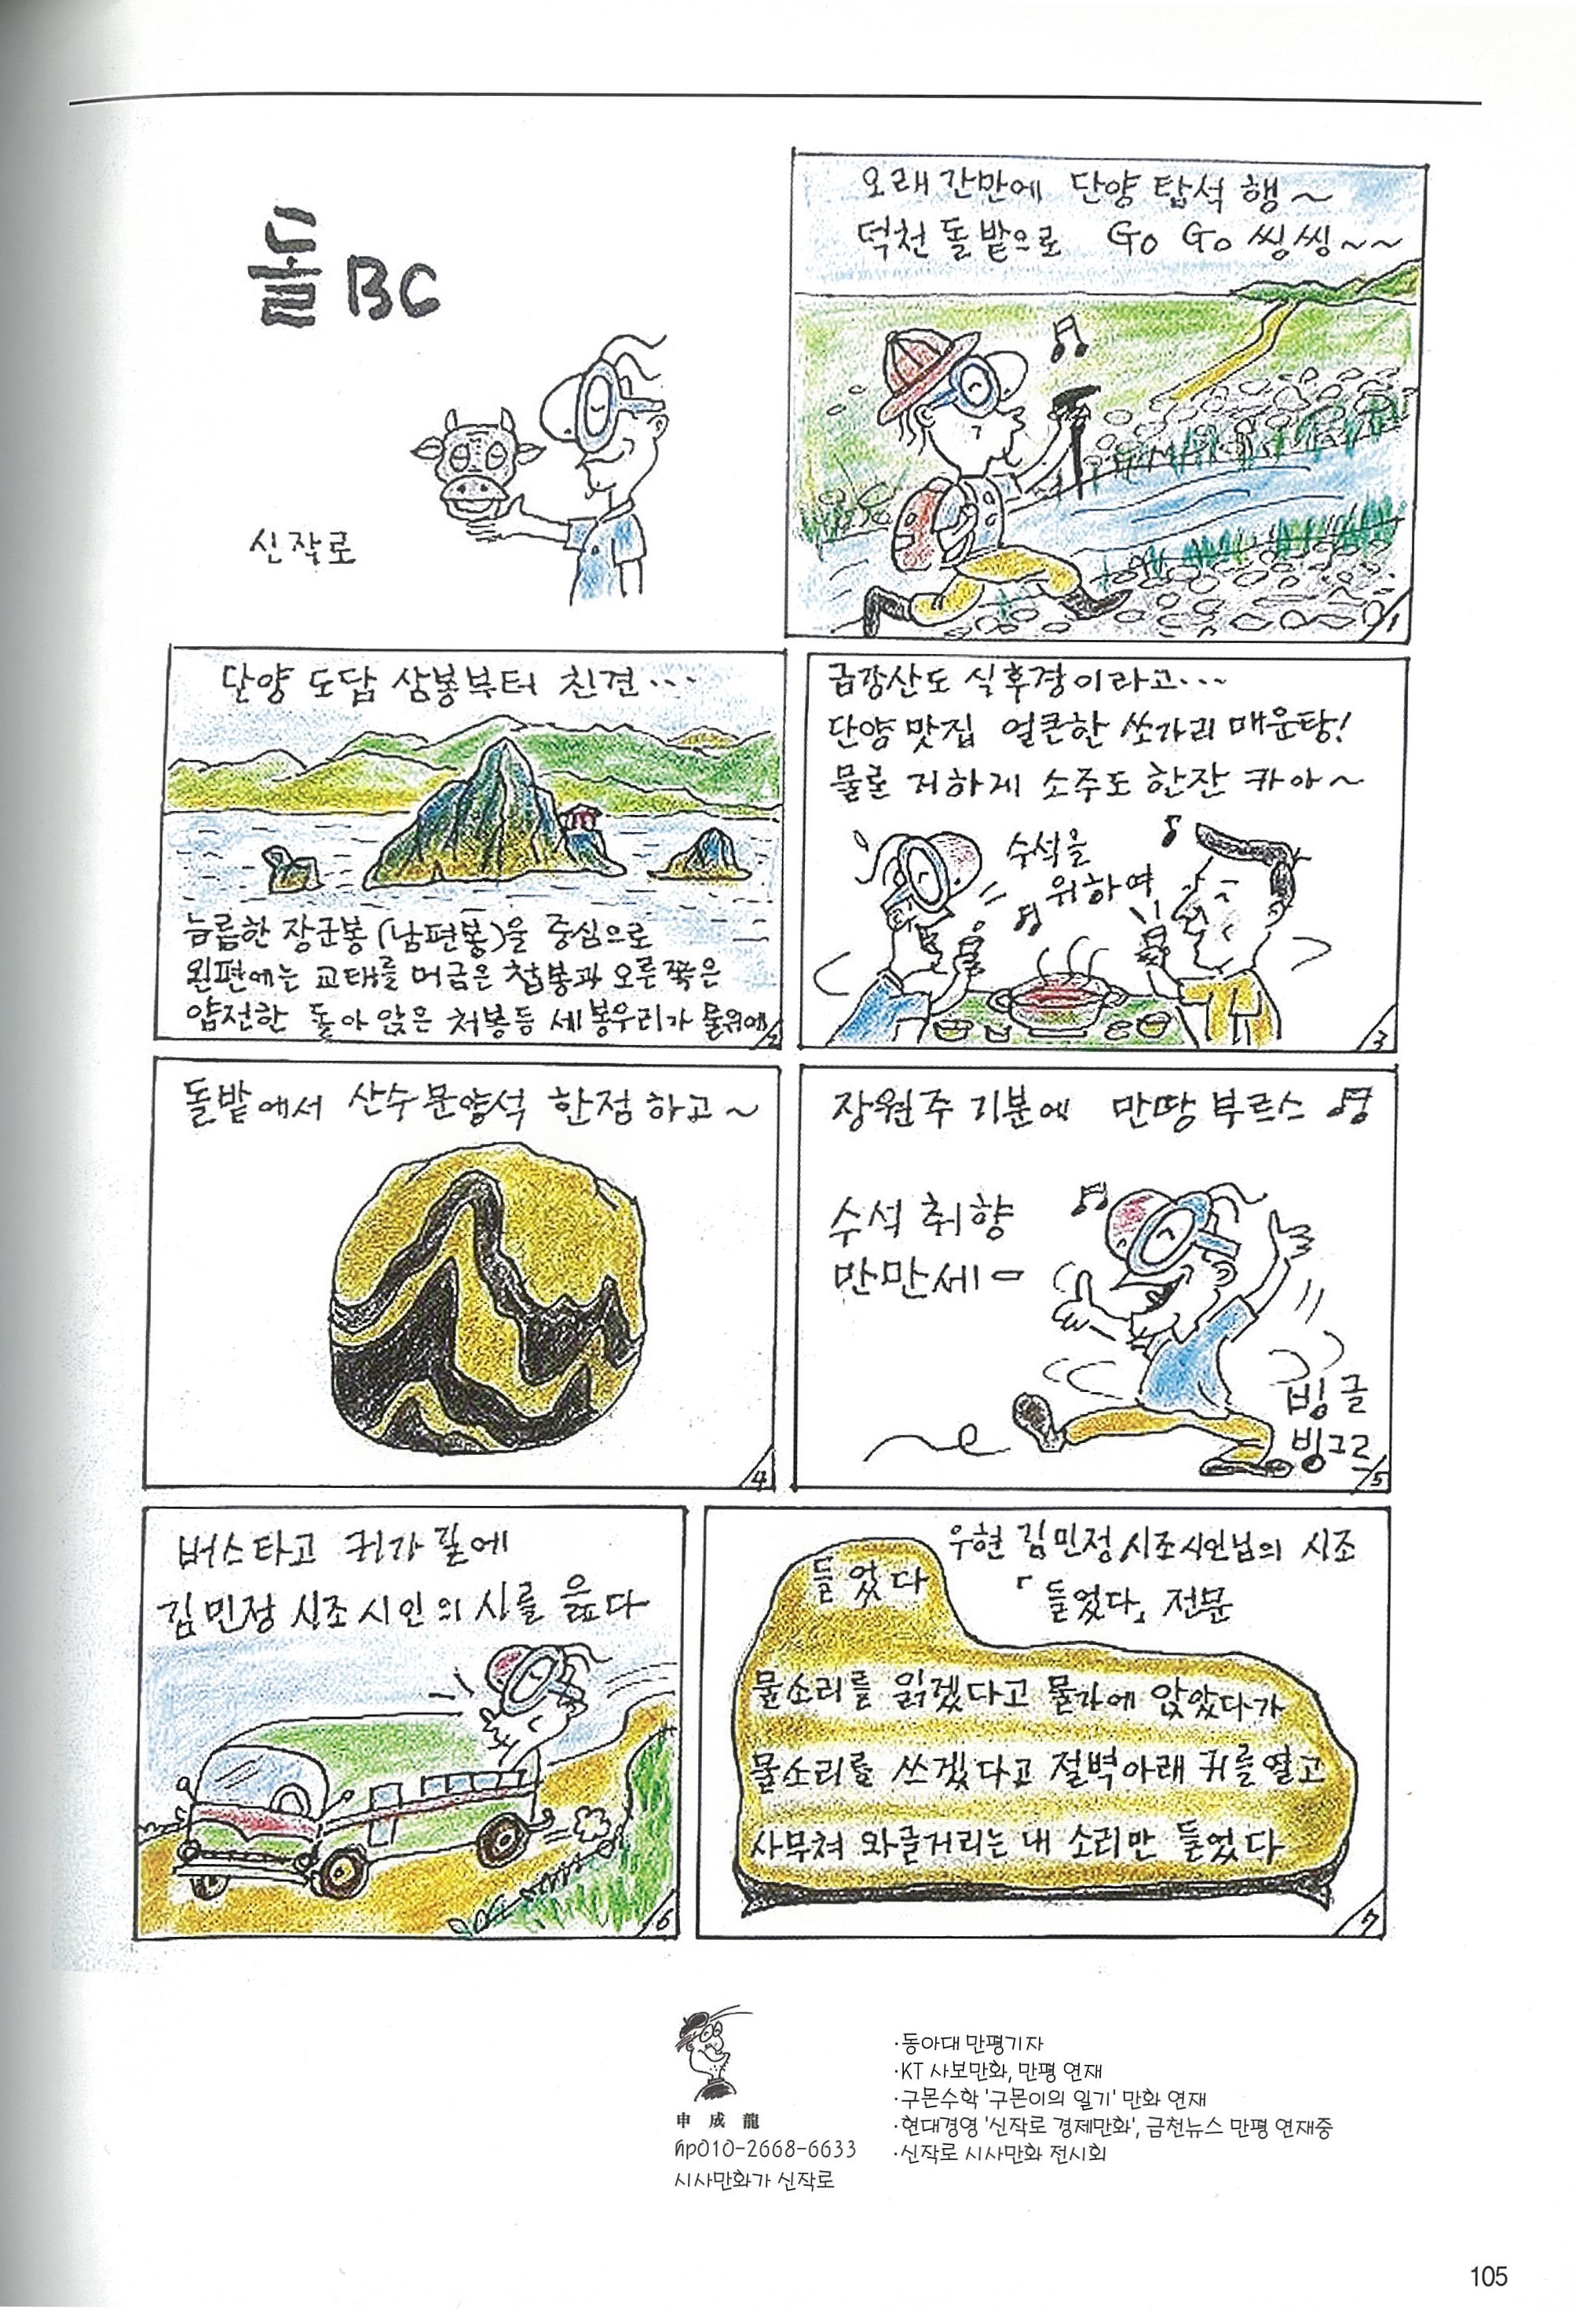 돌 BC
신작로
오래간만에 단양 탐석 행~
덕천 돌밭으로 GO GO 씽씽~~
1
단양 도담 삼봉부터 친견...
늠름한 장군봉(남편봉)을 중심으로
왼편에는 교태를 머금은 첩봉과 오른쪽은
얌전한 돌아 앉은 처봉등 세봉우리가 물위에
2
금강산도 식후경이라고...
단양 맛집 얼큰한 쏘가리 매운탕!
물론 거하게 소주도 한잔 캬아~
수석을
위하여
3
돌밭에서 산수문양석 한점 하고~
4
장원주 기분에 만땅 부르스
수석 취향
만만세ㅡ
빙글
빙그르
5
버스타고 귀가 길에
김민정 시조시인의 시를 읊다
6
우현 김민정 시조시인님의 시조
「들었다」 전문
들었다
물소리를 읽겠다고 물가에 앉았다가
물소리를 쓰겠다고 절벽아래 귀를 열고
사무쳐 와글거리는 내 소리만 들었다
7
申 成 龍
hp010-2668-6633
시사만화가 신작로
·동아대 만평기자
·KT 사보만화, 만평 연재
·구몬수학 '구몬이의 일기' 만화 연재
·현대경영 '신작로 경제만화', 금천뉴스 만평 연재중
·신작로 시사만화 전시회
105